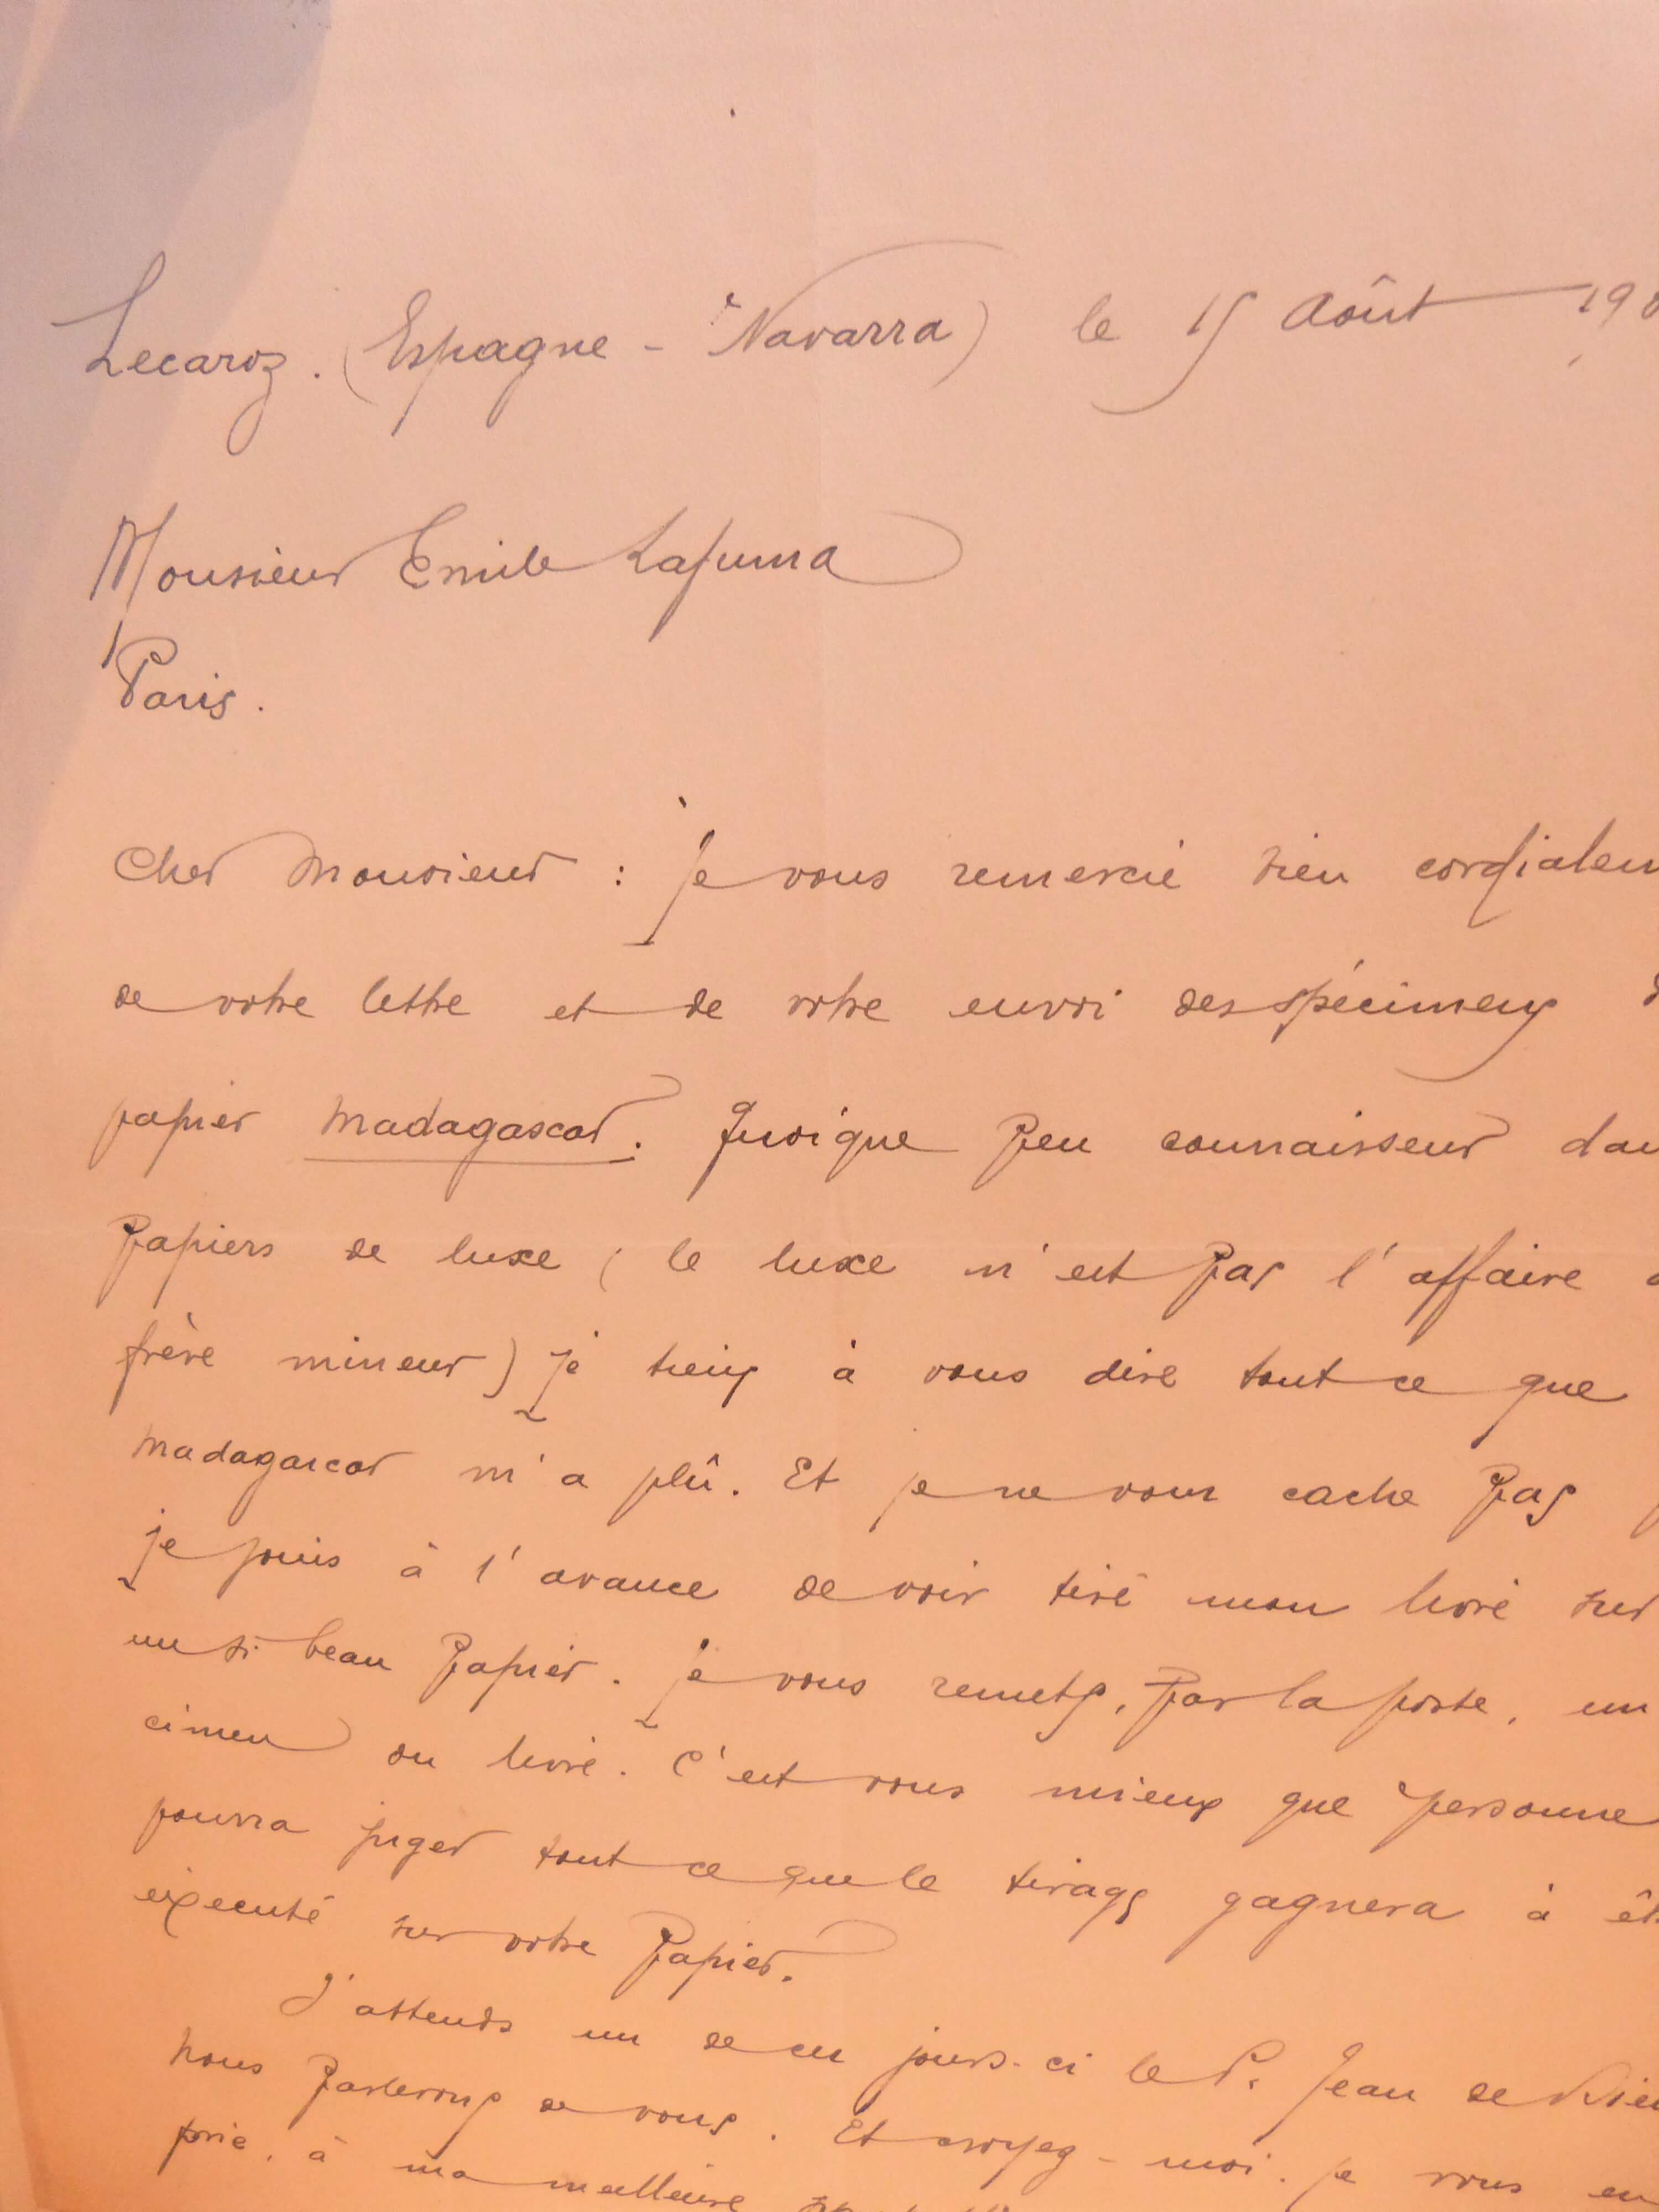 Lecaroz. (Espagne - Navarra) le 15 Août 19
Monsieur Emile Lafuma
Paris.
Cher Monsieur : Je vous remercie bien cordialem
de votre lettre et de votre envoi des spécimens
papier Madagascar. Quoique peu connaisseur dan
papiers de luxe (le luxe n'est pas l'affaire
frère mineur) je tiens à vous dire tout ce que
Madagascar m'a plû. Et je ne vous cache pas
je jouis à l'avance de voir tiré mon livre sur
un si beau papier. Je vous remets, par la poste, un
cimen du livre. C'est vous mieux que personne
pourra juger tout ce que le tirage gagnera à êt
éxecuté sur votre papier.
J'attends un de ces jours-ci le P. Jean de Dieu
Nous parlerons de vous. Et croyez-moi. je vous en
prie, à ma meilleure